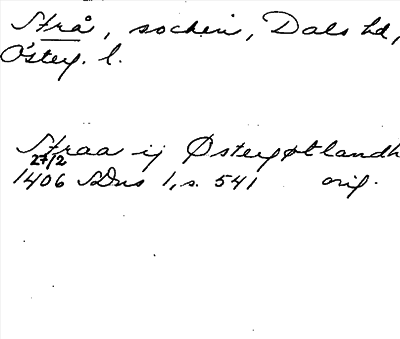 Strå, socken, Dals hd,
Österg. l.
Straa ij Østergøtlandh
27/2
1406 SDns 1, s. 541 orig.